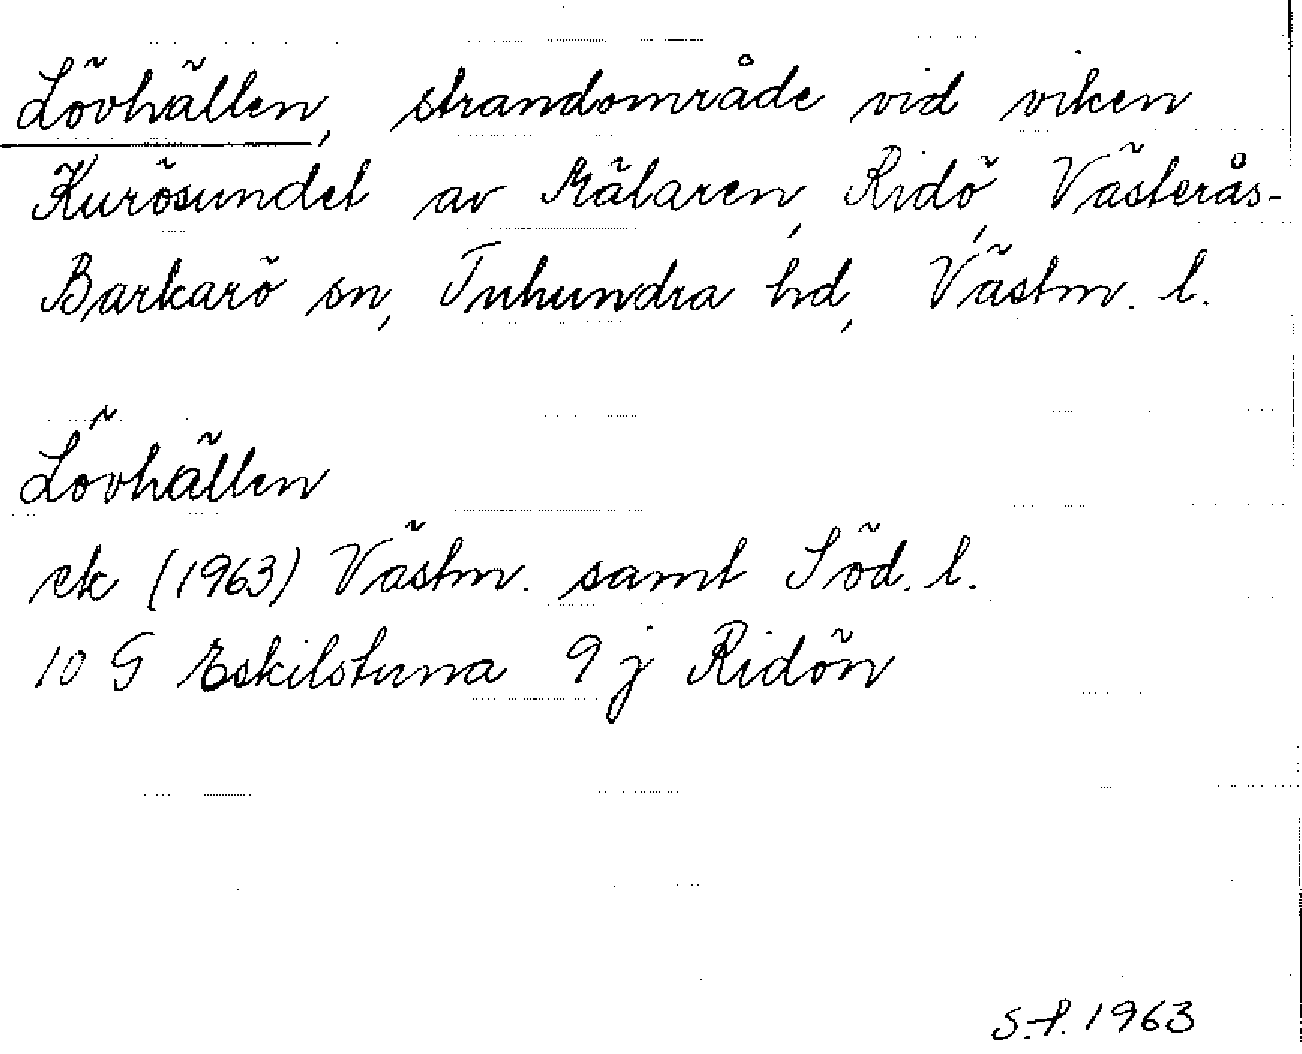 Lövhällen, strandområde vid viken
Kurösundet av Mälaren, Ridö, Västerås-
Barkarö sn, Tuhundra hd, Västm. l.
Lövhällen
ek (1963) Västm. samt Söd. l.
10 G Eskilstuna 9 j Ridön
S.P. 1963